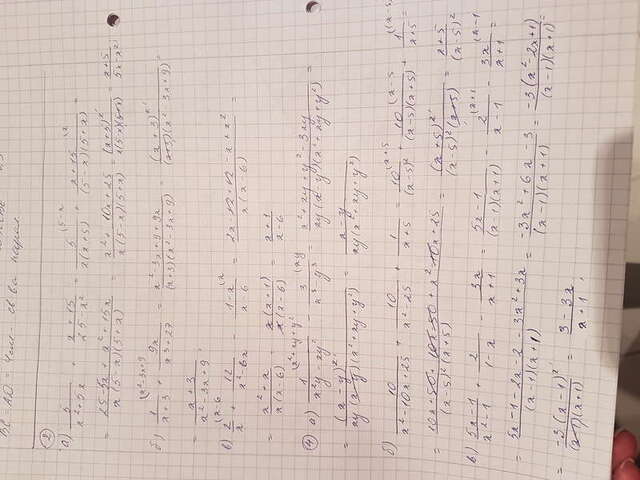 ②
а) 5/(x²+5x) + (x+15)/(25-x²) = 5/(x(x+5)) + (x+15)/((5-x)(5+x)) =
= (25-5x+x²+15x)/(x(5-x)(5+x)) = (x²+10x+25)/(x(5-x)(5+x)) = (x+5)²/(x(5-x)(5+x)) = (x+5)/(5x-x²)
б) 1/(x+3) + 9x/(x³+27) = (x²-3x+9+9x)/((x+3)(x²-3x+9)) = (x+3)²/((x+3)(x²-3x+9)) =
= (x+3)/(x²-3x+9);
в) 2/x + 12/(x²-6x) - (1-x)/(x-6) = (2x-12+12-x+x²)/(x(x-6)) =
= (x²+x)/(x(x-6)) = x(x+1)/(x(x-6)) = (x+1)/(x-6)
④ а) 1/(x²y-xy²) - 3/(x³-y³) = (x²+xy+y²-3xy)/(xy(x-y)(x²+xy+y²)) =
= (x-y)²/(xy(x-y)(x²+xy+y²)) = (x-y)/(xy(x²+xy+y²))
б) 10/(x²-10x+25) + 10/(x²-25) + 1/(x+5) = 10/(x-5)² + 10/((x-5)(x+5)) + 1/(x+5) =
= (10x+50+10x-50+x²-10x+25)/((x-5)²(x+5)) = (x+5)²/((x-5)²(x+5)) = (x+5)/(x-5)²
в) (5x-1)/(x²-1) + 2/(1-x) - 3x/(x+1) = (5x-1)/((x-1)(x+1)) - 2/(x-1) - 3x/(x+1) =
= (5x-1-2x-2-3x²+3x)/((x-1)(x+1)) = (-3x²+6x-3)/((x-1)(x+1)) = -3(x²-2x+1)/((x-1)(x+1)) =
= -3(x-1)²/((x-1)(x+1)) = (3-3x)/(x+1);